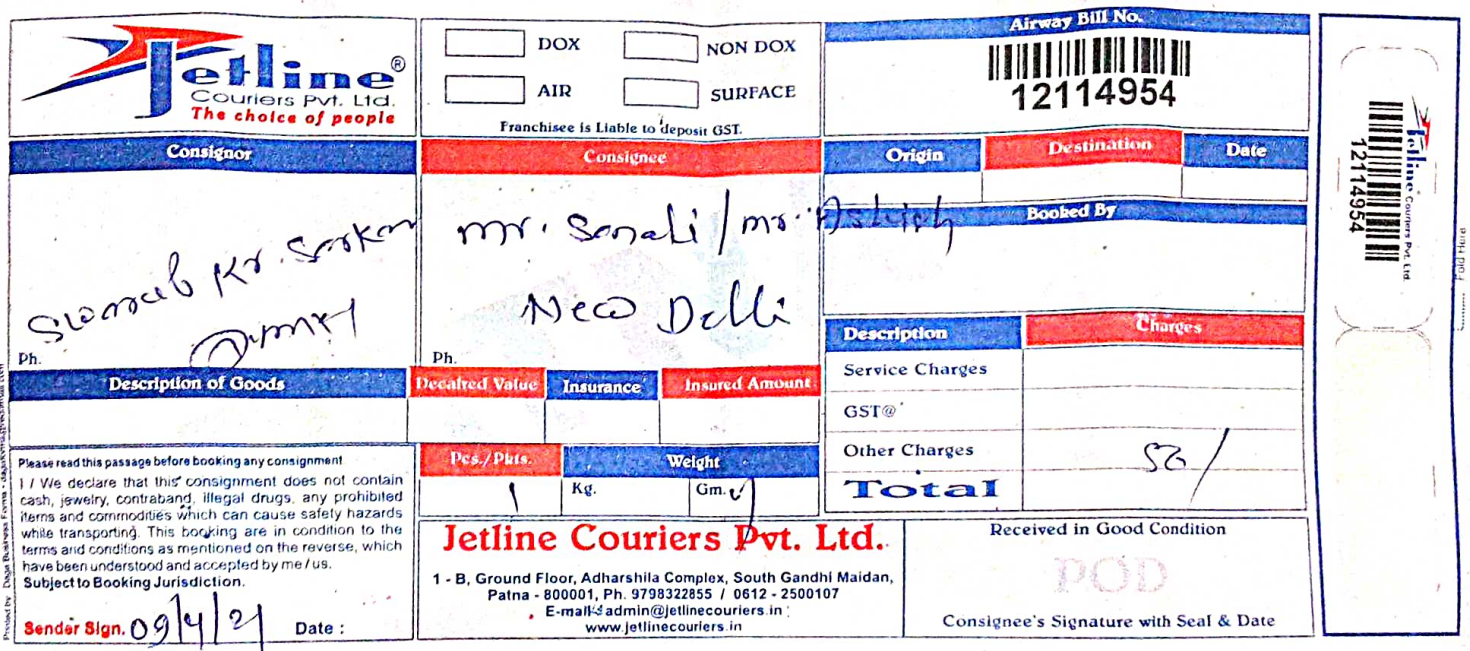 Jetline®
Couriers Pvt. Ltd.
The choice of people
DOX
NON DOX
AIR
SURFACE
Franchisee is Liable to deposit GST.
Airway Bill No.
12114954
Consignor
Kr. Sarkar
Ph.
Consignee
mr. Sonali / mr. Ashish
New Delhi
Ph.
Origin
Destination
Date
Booked By
Description of Goods
Decalred Value
Insurance
Insured Amount
Description
Charges
Service Charges
GST@
Other Charges
Total
Please read this passage before booking any consignment
I / We declare that this consignment does not contain
cash, jewelry, contraband, illegal drugs, any prohibited
items and commodities which can cause safety hazards
while transporting. This booking are in condition to the
terms and conditions as mentioned on the reverse, which
have been understood and accepted by me / us.
Subject to Booking Jurisdiction.
Sender Sign. 09/4/21 Date :
Pcs./Pkts.
Weight
1
Kg.
Gm.
Jetline Couriers Pvt. Ltd.
1 - B, Ground Floor, Adharshila Complex, South Gandhi Maidan,
Patna - 800001, Ph. 9798322855 / 0612 - 2500107
E-mail: admin@jetlinecouriers.in
www.jetlinecouriers.in
Received in Good Condition
POD
Consignee's Signature with Seal & Date
Jetline Couriers Pvt. Ltd.
12114954
Fold Here